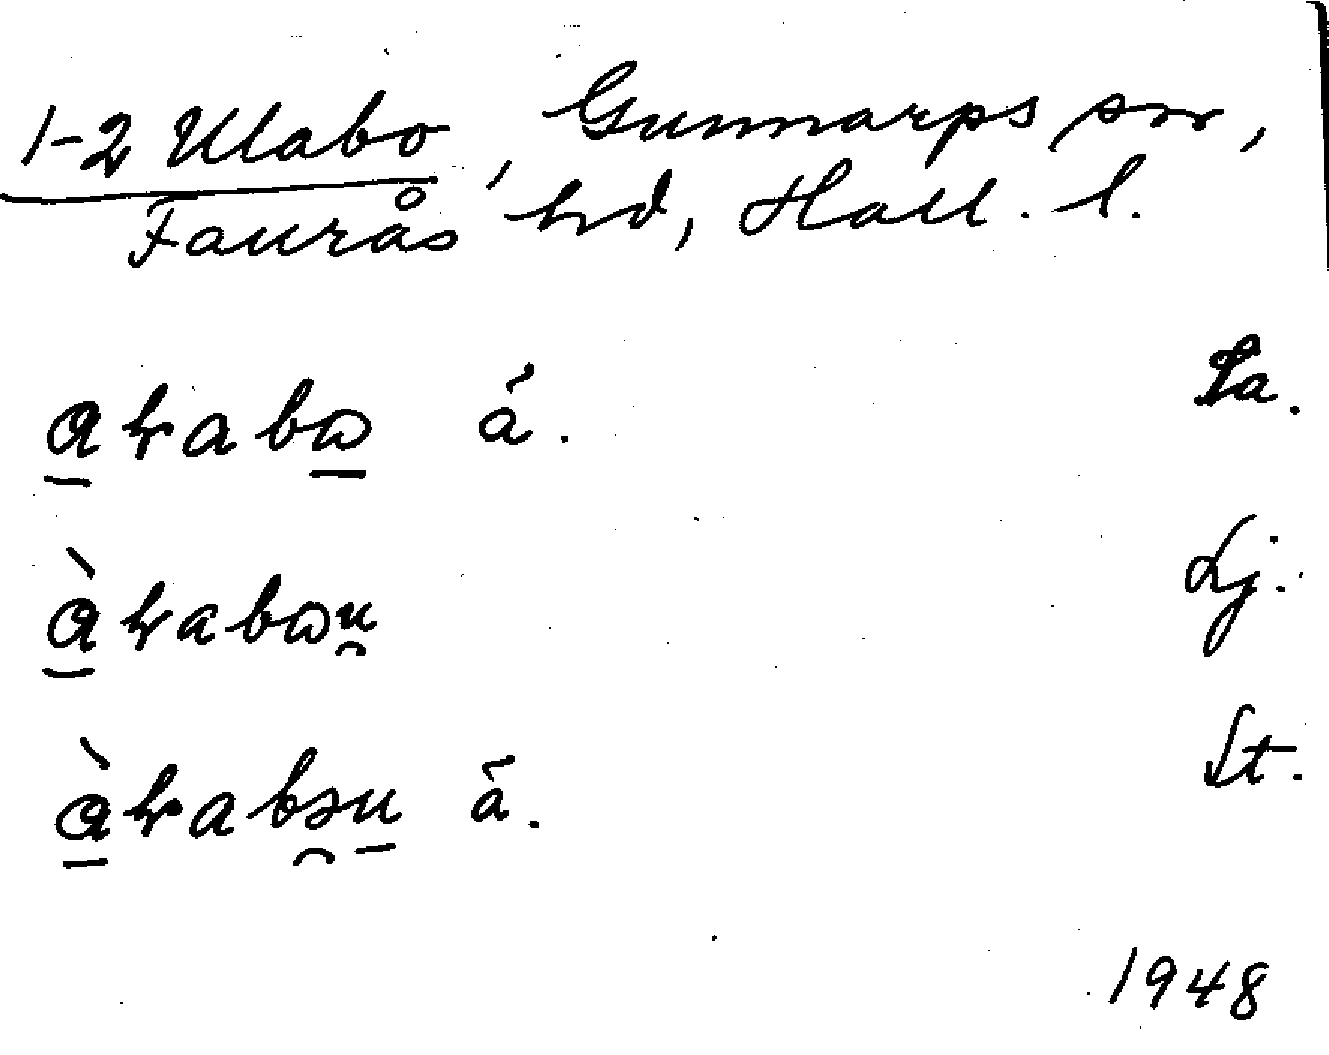 1-2 Ulabo, Gunnarps sn,
Faurås hd, Hall. l.
a̲rabɷ̲ á. La.
à̲rabɷu̯ Lj.
à̲rabɔ̯u̲ á. St.
1948